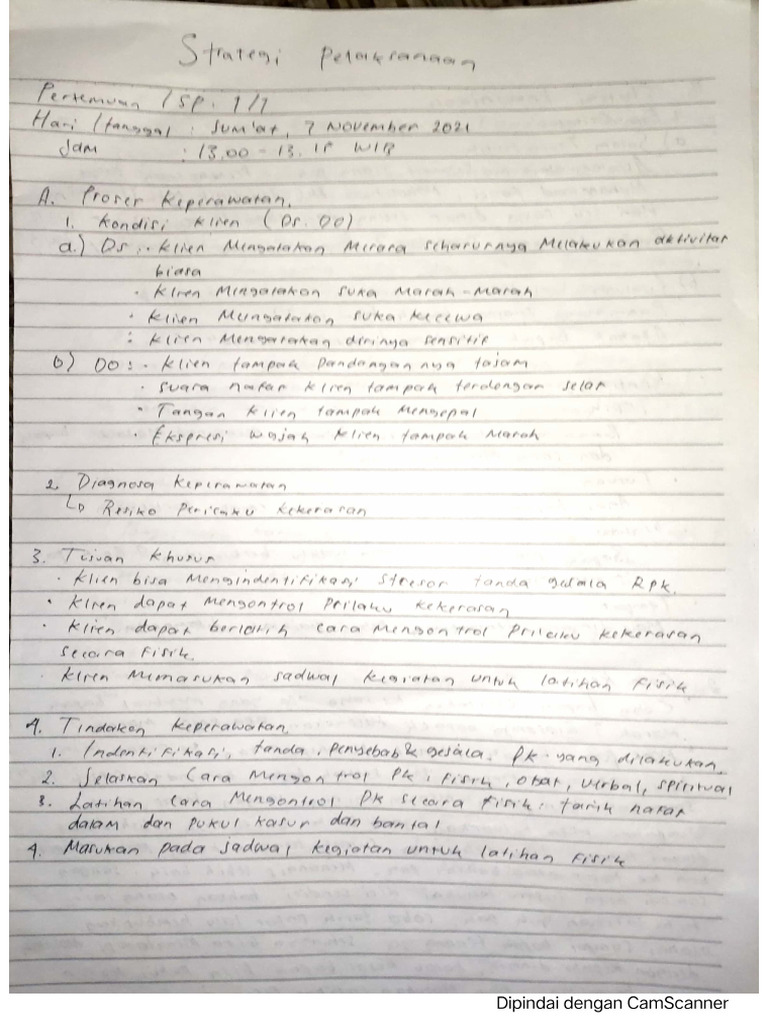 Strategi Pelaksanaan
Pertemuan / SP. 1/1
Hari / tanggal : Jum'at, 7 November 2021
Jam : 13.00 - 13.15 WIB
A. Proses Keperawatan.
1. Kondisi Klien (Ds. DO)
a.) Ds : · Klien Mengatakan Merasa seharusnya Melakukan aktivitas
biasa
· Klien Mengatakan suka Marah-Marah
· Klien Mengatakan suka Kecewa
: Klien Mengatakan dirinya sensitif
b) DO : · Klien tampak Pandangannya tajam
· suara nafas Klien tampak terdengar
· Tangan Klien tampak Mengepal
· Ekspresi wajah Klien tampak Marah
2. Diagnosa Keperawatan
↳ Resiko Perilaku Kekerasan
3. Tujuan Khusus
· Klien bisa Mengindentifikasi stresor tanda gejala RPK.
· Klien dapat Mengontrol Prilaku Kekerasan
· Klien dapat berlatih cara Mengontrol Prilaku Kekerasan
secara Fisik.
· Klien Memasukan jadwal Kegiatan untuk latihan Fisik
4. Tindakan Keperawatan.
1. Indentifikasi, tanda, Penyebab & gejala. PK yang dilakukan
2. Jelaskan Cara Mengontrol PK : Fisik, obat, verbal, spiritual
3. Latihan Cara Mengontrol PK secara fisik : tarik nafas
dalam dan Pukul Kasur dan bantal
4. Masukan Pada jadwal Kegiatan untuk latihan Fisik
Dipindai dengan CamScanner